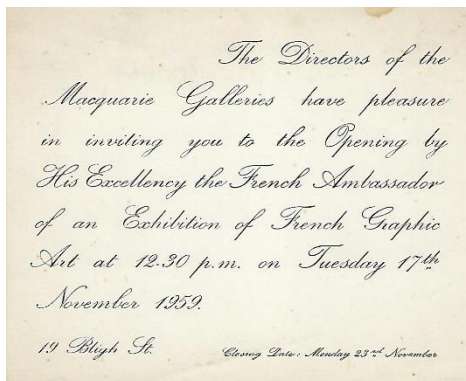 The Directors of the
Macquarie Galleries have pleasure
in inviting you to the Opening by
His Excellency the French Ambassador
of an Exhibition of French Graphic
Art at 12.30 p.m. on Tuesday 17th
November 1959.
19 Bligh St.
Closing Date: Monday 23rd November